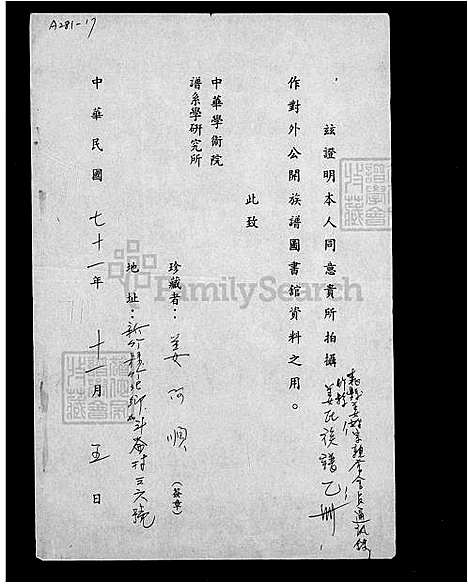 A281-17
茲證明本人同意貴所拍攝姜氏族譜乙冊
作對外公開族譜圖書館資料之用。
此致
中華學術院
譜系學研究所
珍藏者：姜阿順(簽章)
地址：新竹縣竹北鄉斗崙村三六號
中華民國七十一年十一月五日
FamilySearch